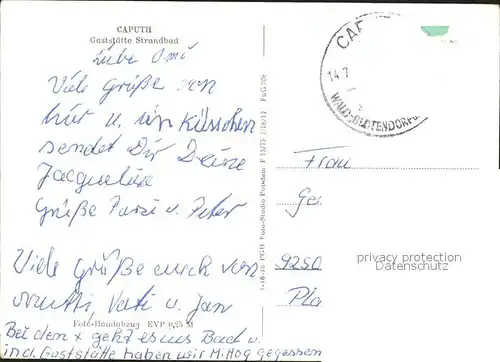 CAPUTH
Gaststätte Strandbad
Liebe Omi
Viele Grüße von
hier u. ein Küsschen
sendet Dir Deine
Jacqueline
Grüße u. Peter
Viele Grüße auch von
Mutti, Vati u. Jan
Foto-Handabzug EVP 0,25 M
Bei dem x geht es ins Bad u.
in d. Gaststätte haben wir M.
gegessen
PGH Foto-Studio Potsdam
CAP
14.7
WALD-BLÜTENDORF
Frau
Ge
9250
Pla
privacy protection
Datenschutz